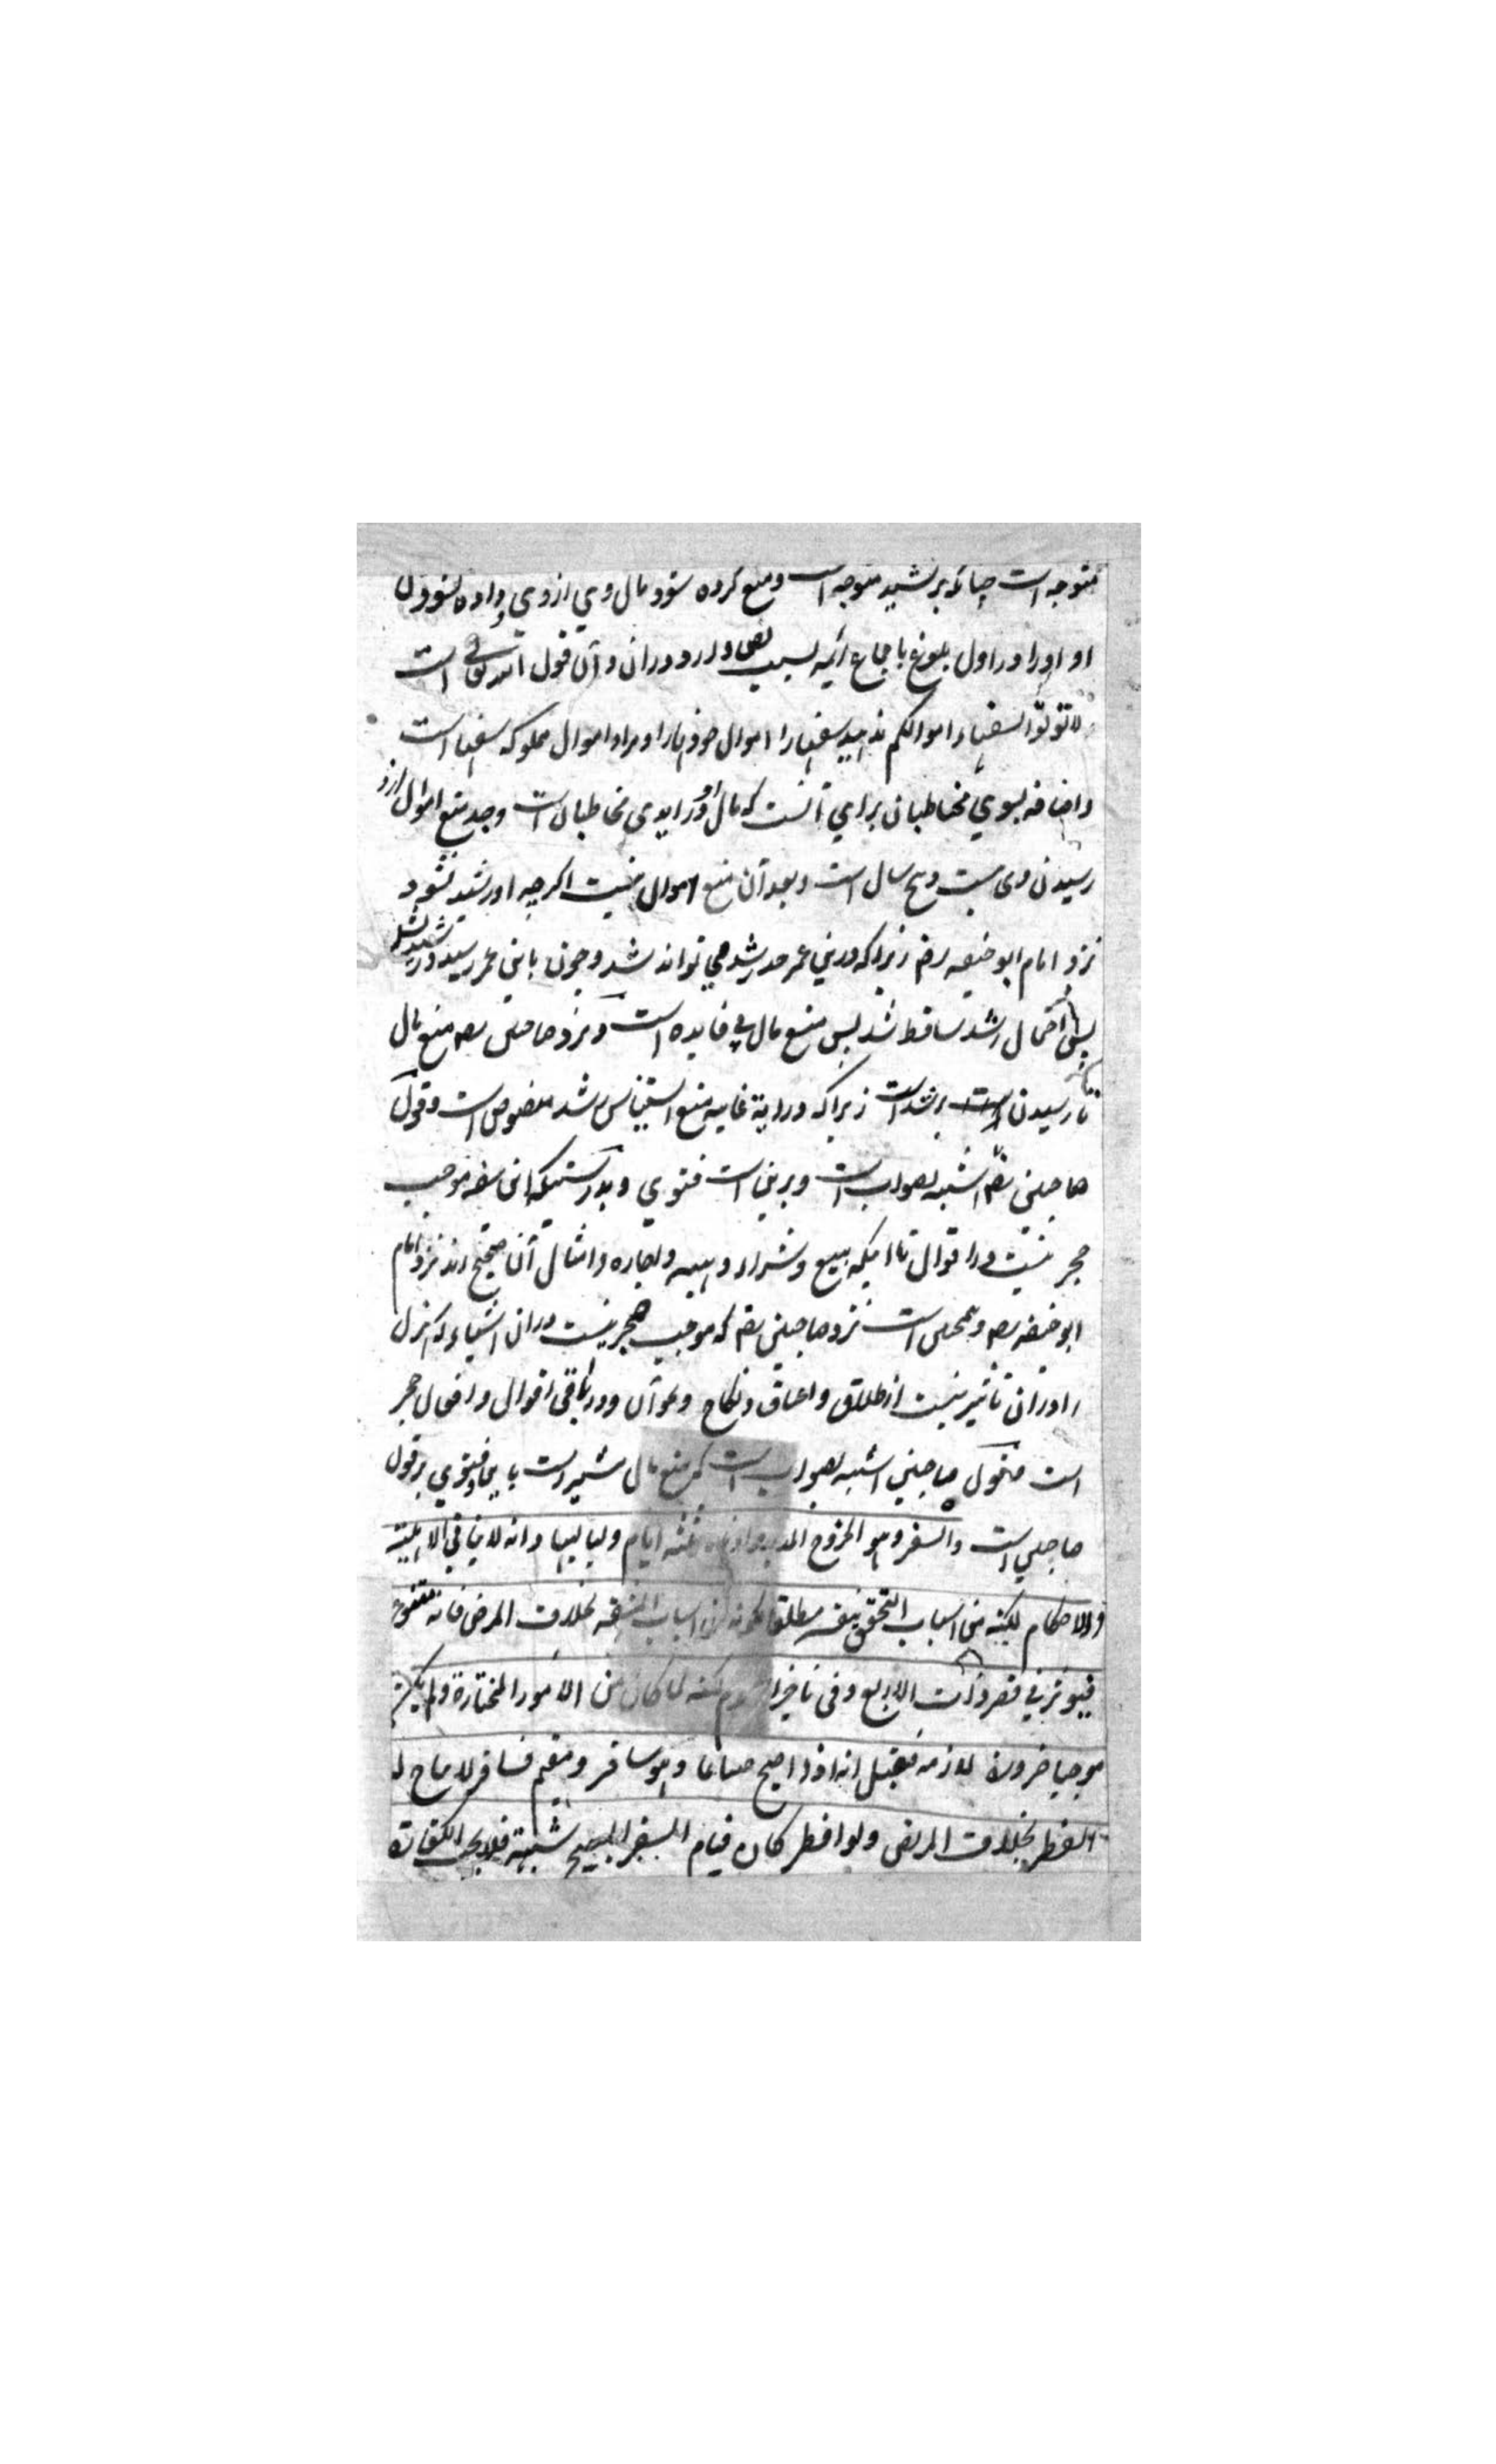 متوجه است چنانکه بر رشید متوجه است و منع کرده شود مال وی از وی و داده نشود مال
او او را در اول بلوغ باجماع ائمه بسبب نص وارد در ان و آن قول الله تعالی است
لا تؤتوا السفهاء اموالکم ندهید سفها را اموال خود را و مراد اموال مملوکه سفها است
و اضافه بسوی مخاطبان برای آنست که مال او در ایدی مخاطبان است و حد منع اموال ازو
رسیدن وی بیست و پنج سال است و بعد آن منع اموال نیست اگرچه او رشید نشود
نزد امام ابو حنیفه رض زیرا که درین عمر جد رشد می تواند شد و چون باین عمر رسید و رشید نشد
پس احتمال رشد ساقط شد پس منع مال بی فایده است و نزد صاحبین رحمه منع مال
تا رسیدن برشد است زیرا که در آیة غایه منع استیناس رشد منصوص است و قول
صاحبین رحمه اشبه بصواب است و برین است فتوی و بدرستیکه این سفه موجب
حجر نیست در اقوال تا اینکه بیع و شراء و هبه و اجاره و امثال آن صحیح اند نزد امام
ابو حنیفه رحمه و همچنین است نزد صاحبین رحمه که موجب حجر نیست در ان اشیاء که هزل
را در ان تاثیر نیست از طلاق و اعتاق و نکاح و نحو آن و در باقی اقوال و افعال حجر
است صاحبین اشبه بصواب است که منع مال است فتوی بر قول
صاحبین است والسفر وهو الخروج المدید و ادناه ثلثه ایام و لیالیها و انه لا ینافی الاهلیته
والاحکام لکنه من اسباب التحقیق بنفسه مطلقا لکونه من اسباب المشقه بخلاف المرض فانه متنوع
فیؤثر فی قصر ذوات الاربع و فی تاخیر الصوم لکنه لما کان من الامور المختارة و لم یکن
موجبا ضرورة لازمه فقیل انه اذا اصبح صائما و هو مسافر و مقیم فسافر لا یباح له
الفطر بخلاف المریض ولو افطر کان قیام السفر المبیح شبهة فلا یجب الکفارة